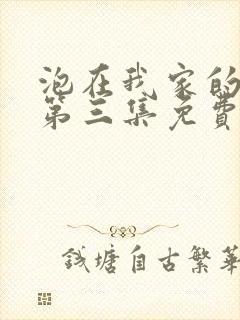 泡在我家的
第三集免费
钱塘自古繁华